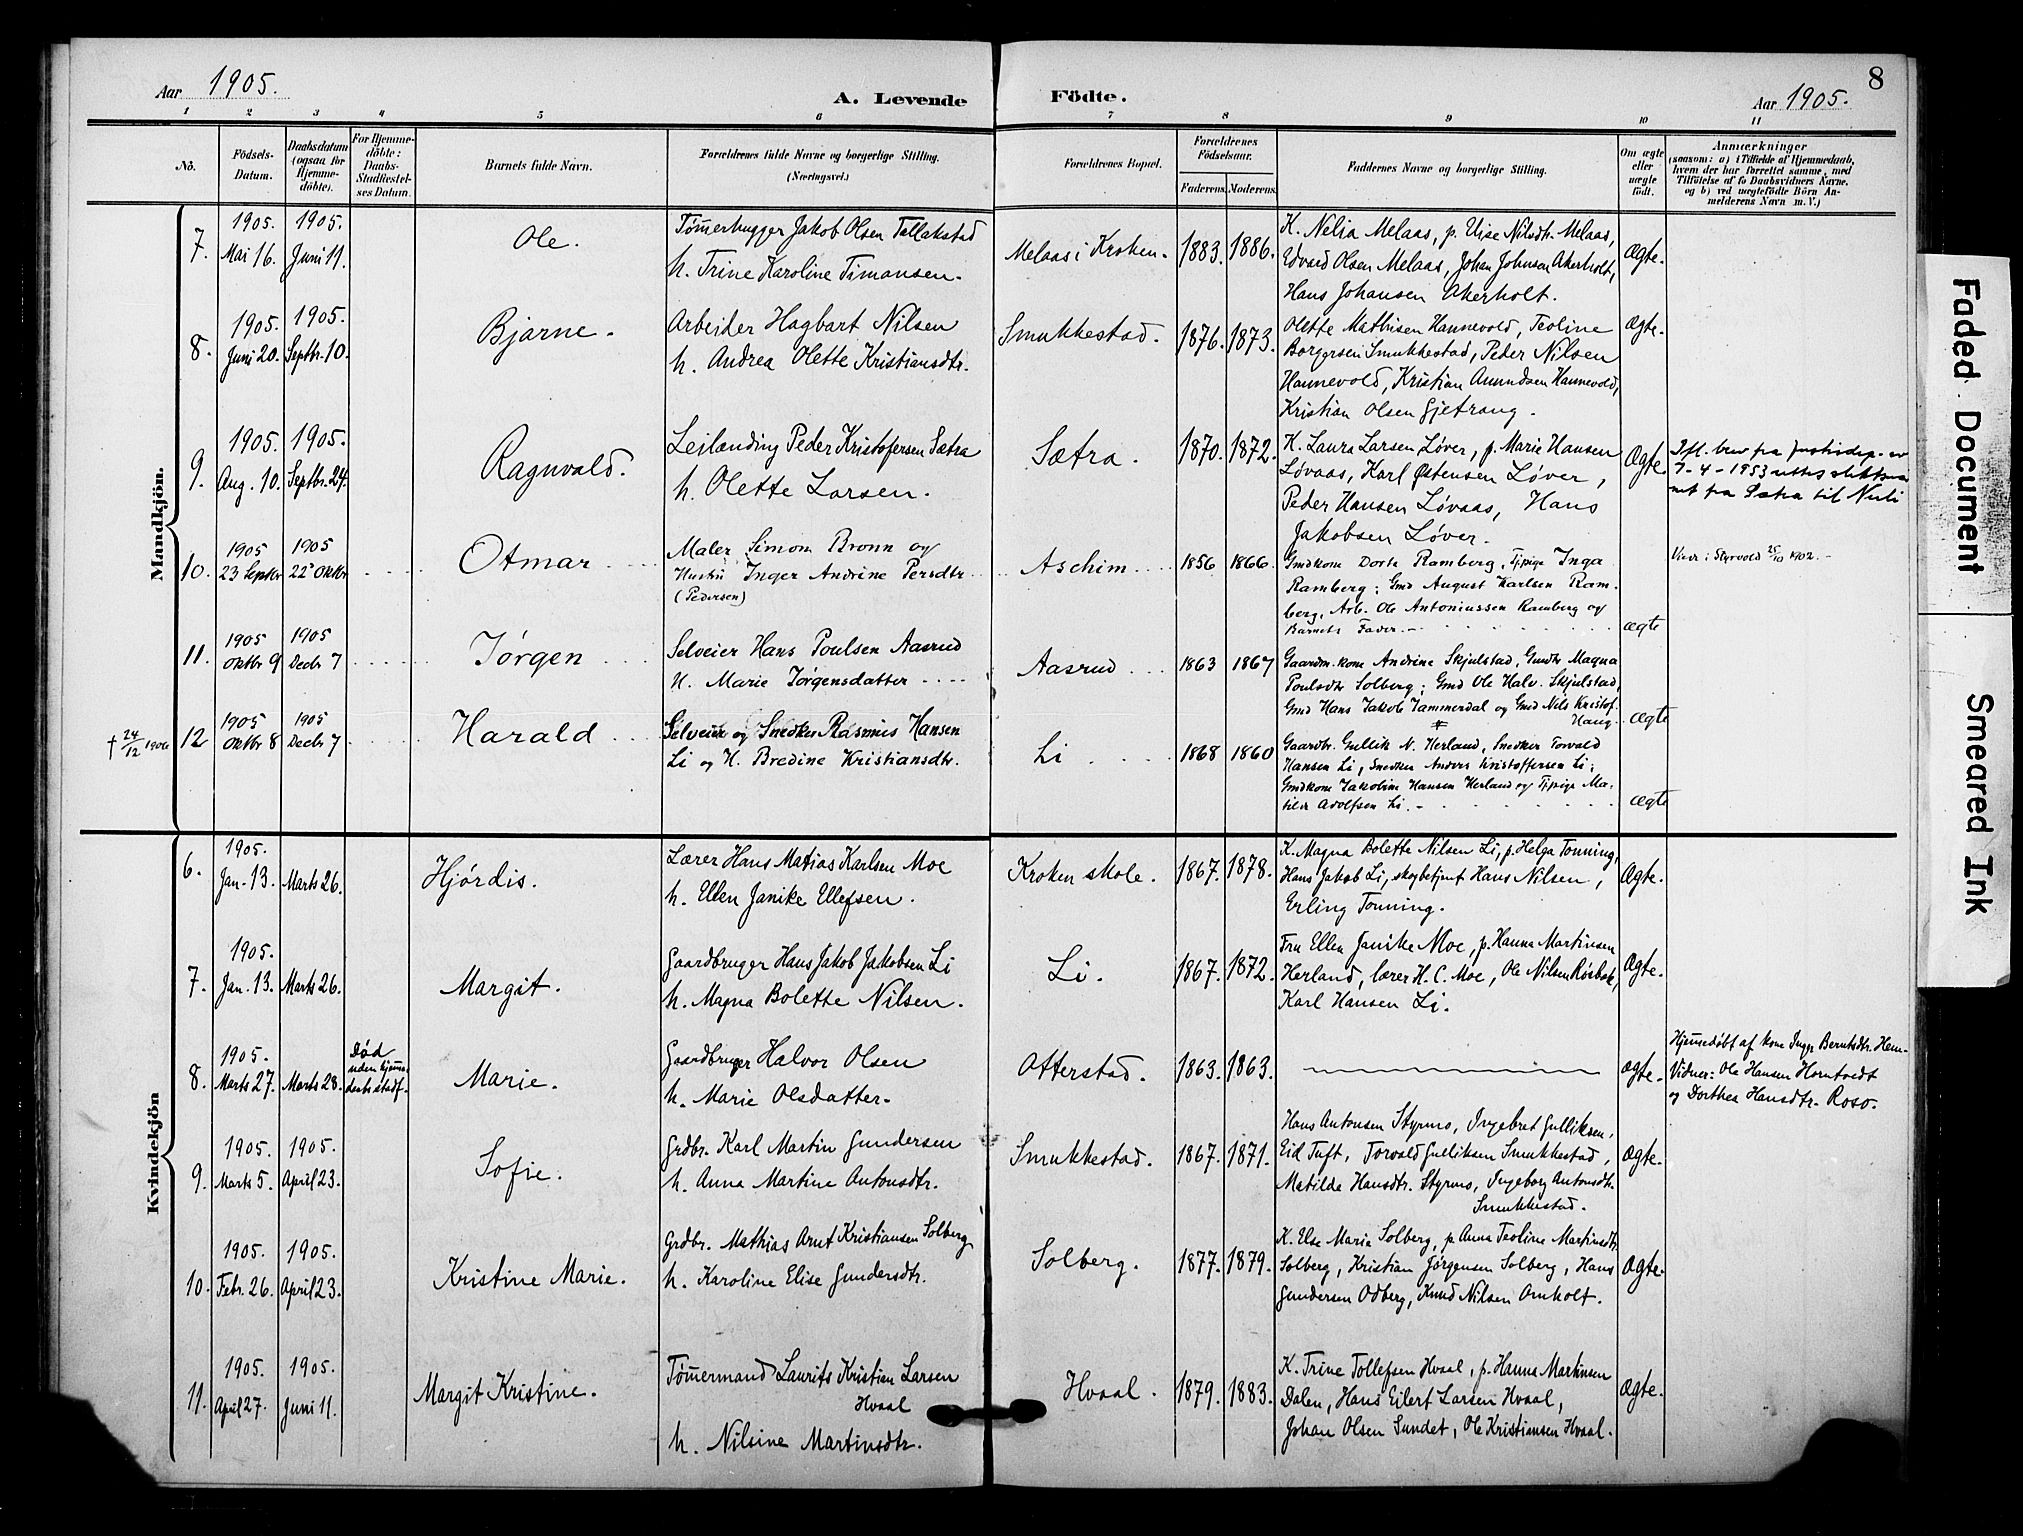 8
Aar 1905.
A. Levende Födte.
Aar 1905.
1 2 3 4 5 6 7 8 9 10 11
No.
Födsels-
Datum.
Daabsdatum
(ogsaa for
Hjemme-
döbte).
For Hjemme-
döbte:
Daabs-
Stadfæstel-
ses Datum.
Barnets fulde Navn.
Forældrenes fulde Navne og borgerlige Stilling.
(Næringsvei.)
Forældrenes Bopæl.
Forældrenes
Födselsaar.
Faderens. Moderens.
Faddernes Navne og borgerlige Stilling.
Om ægte
eller
uægte
født.
Anmærkninger
(saasom: a) i Tilfælde af Hjemmedaab,
hvem der har forrettet samme, med
Tilföielse af to Daabsvidners Navne,
og b) ved uægtefödte Börn An-
melderens Navn m. V.)
Mandkjön.
7.
1905.
Mai 16.
1905.
Juni 11.
Ole.
Tømerhugger Jakob Olsen Tellakstad
h. Trine Karoline Timansen.
Melaas i Kroken.
1883. 1886.
K. Nelia Melaas, p. Elise Nilsdtr. Melaas,
Edvard Olsen Melaas, Johan Johnsen Akerholt,
Hans Johansen Akerholt.
Ægte.
8.
1905.
Juni 20.
1905.
Septbr. 10.
Bjarne.
Arbeider Hagbart Nilsen
h. Andrea Olette Kristiansdtr.
Smukkestad.
1876. 1873.
Olette Mathisen Hannevold, Teoline
Borgersen Smukkestad, Peder Nilsen
Hannevold, Kristian Amundsen Hannevold,
Kristian Olsen Gjetrang.
Ægte.
9.
1905.
Aug. 10.
1905.
Septbr. 24.
Ragnvald.
Leilænding Peder Kristofersen Sætra
h. Olette Larsen.
Sætra.
1870. 1872.
K. Laura Larsen Løver, p. Marie Hansen
Løvaas, Karl Østensen Løver,
Peder Hansen Løvaas, Hans
Jakobsen Løver.
Ægte
Ifl. brev fra Justisdep. av
7-4-1953 slektsna
fra Sætra til
10.
1905
23 Septbr
1905
22 Oktbr
Otmar
Maler Simon Bronn og
Hustru Inger Andrine Persdtr.
(Pedersen)
Aschim
1856 1866
Gmdkone Dorte Ramberg, Tjpige Inga
Ramberg; Gmd August Karlsen Ram-
berg, Arb. Ole Antoniussen Ramberg og
Barnets Fader.
ægte
Viede i Styrvold 25/10 1902.
11.
1905
Oktbr 9
1905
Decbr 7
Jørgen
Selveier Hans Poulsen Aasrud
H. Marie Jørgensdatter
Aasrud
1863 1867
Gaardm.kone Andrine Skjulstad, Gmdtr Magna
Poulsdtr Solberg; Gmd Ole Halv. Skjulstad,
Gmd Hans Jakob Jammerdal og Gmd Nils Kristof.
Haug.
ægte
† 24/12 1906
12
1905
Oktbr 8
1905
Decbr 7
Harald
Selveier og Snedker Rasmus Hansen
Li og H. Bredine Kristiansdtr.
Li
1868 1860
Gaardbr. Gullik N. Herland, Snedker Torvald
Hansen Li, Snedker Anders Kristoffersen Li;
Gmdkone Jakobine Hansen Herland og Tjpige Ma-
tilde Adolfsen Li.
ægte
Kvindekjön
6.
1905.
Jan. 13.
Marts 26.
Hjørdis.
Lærer Hans Matias Karlsen Moe
h. Ellen Janike Ellefsen.
Kroken skole.
1867. 1878.
K. Magna Bolette Nilsen Li, p. Helga Tonning,
Hans Jakob Li, skogbetjent Hans Nilsen,
Erling Tonning.
Ægte.
7.
1905.
Jan. 13.
Marts 26.
Margit.
Gaardbruger Hans Jakob Jakobsen Li
h. Magna Bolette Nilsen.
Li.
1867. 1872.
Fru Ellen Janike Moe, p. Hanna Martinsen
Herland, lærer H. C. Moe, Ole Nilsen Rösbak,
Karl Hansen Li.
Ægte.
8.
1905.
Marts 27.
Marts 28.
Død
uden hjeme-
daabs stadf.
Marie.
Gaardbruger Halvor Olsen
h. Marie Olsdatter.
Otterstad.
1863. 1863.
Ægte.
Hjemedøbt af kone Inger Berntsdtr. Hem-
Vidner: Ole Hansen Horntvedt
og Dorthea Hansdtr. Roso.
9.
1905.
Marts 5.
1905.
April 23.
Sofie.
Grdbr. Karl Martin Gundersen
h. Anna Martine Antonsdtr.
Smukkestad.
1867. 1871.
Hans Antonsen Styrmo, Ingebret Gulliksen,
Eid Tuft, Torvald Gulliksen Smukkestad,
Matilde Hansdtr. Styrmo, Ingeborg Antonsdtr.
Smukkestad.
Ægte.
10.
1905.
Febr. 26.
1905.
April 23.
Kristine Marie.
Grdbr. Mathias Arnt Kristiansen Solberg
h. Karoline Elise Gundersdtr.
Solberg.
1877. 1879.
K. Else Marie Solberg, p. Anna Teoline Martinsdtr.
Solberg, Kristian Jørgensen Solberg, Hans
Gundersen Odberg, Knud Nilsen Omholt.
Ægte.
11.
1905.
April 27.
1905.
Juni 11.
Margit Kristine.
Tømermand Laurits Kristian Larsen
Hvaal
h. Nilsine Martinsdtr.
Hvaal.
1879. 1883.
K. Trine Tollefsen Hvaal, p. Hanna Martinsen
Dalen, Hans Eilert Larsen Hvaal,
Johan Olsen Sundet, Ole Kristiansen Hvaal.
Ægte.
Faded Document
Smeared Ink